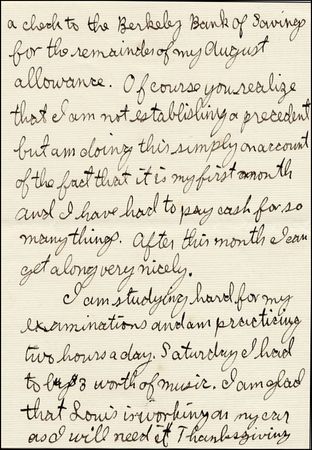 a check to the Berkeley Bank of Savings
for the remainder of my August
allowance. Of course you realize
that I am not establishing a precedent
but am doing this simply on account
of the fact that it is my first month
and I have had to pay cash for so
many things. After this month I can
get along very nicely.
I am studying hard for my
examinations and am practicing
two hours a day. Saturday I had
to buy $3 worth of music. I am glad
that Louis is working on my car
as I will need it Thanksgiving